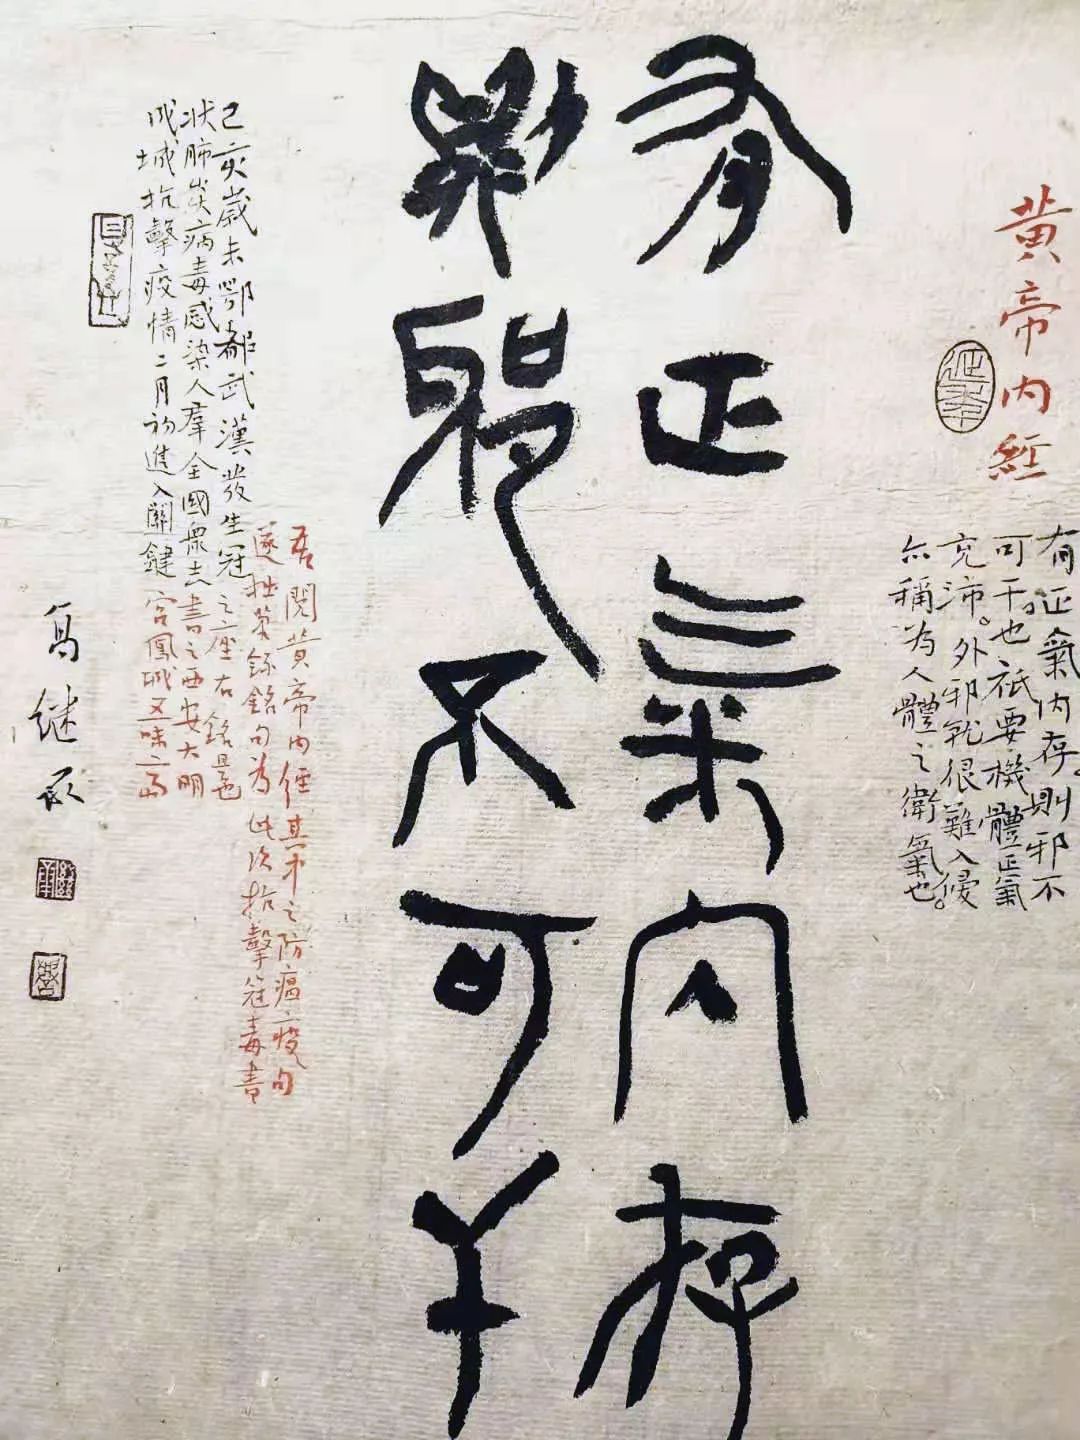 黄帝内經
有正氣内存。則邪不
可干。也祇要機體正氣
充沛。外邪就很難入侵
亦稱为人體之衛氣也。
有正氣内存
則邪不可干
吾閱黄帝内經其中之防瘟疫句
遂拙筆錄銘句為此次抗擊冠毒書
己亥歲末鄂都武漢發生冠
之座右銘是也
状肺炎病毒感染人羣全國衆志
書之西安大明
成城抗擊疫情二月初進入關鍵
宫鳳城
葛継承